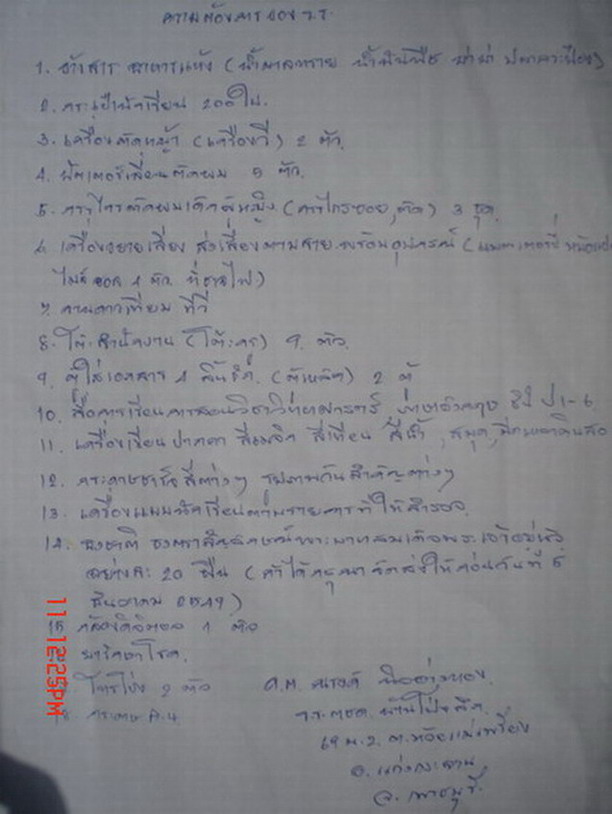 ความต้องการของ ร.ร.
1. ข้าวสาร อาหารแห้ง (น้ำตาลทราย น้ำมันพืช มาม่า ปลากระป๋อง)
2. กระเป๋านักเรียน 200 ใบ.
3. เครื่องตัดหญ้า (เครื่องวี่) 2 ตัว.
4. ปัตเตอร์เลี่ยนตัดผม 5 ตัว.
5. กรรไกรตัดผมเด็กผู้หญิง (กรรไกรซอย, ตัด) 3 ชุด.
6. เครื่องขยายเสียง ส่งเสียงตามสาย พร้อมอุปกรณ์ (แบตเตอรี่
ไมล์ลอย 1 ตัว ที่ชาร์จไฟ)
7. จานดาวเทียม ทีวี
8. โต๊ะสำนักงาน (โต๊ะครู) 9 ตัว.
9. ตู้ใส่เอกสาร 4 ลิ้นชัก. (ตู้เหล็ก) 2 ตู้
10. สื่อการเรียนการสอนวิชาวิทยาศาสตร์, ภาษาอังกฤษ ชั้น ป.1-6
11. เครื่องเขียน ปากกา สีเมจิก สีเทียน สีน้ำ, สมุด, ดินสอ
12. กระดาษชาร์ทสีต่างๆ รูปภาพวันสำคัญต่างๆ
13. เครื่องแบบนักเรียนตามรายการที่ให้สำรวจ.
14. ธงชาติ ธงตราสัญลักษณ์พระบาทสมเด็จพระเจ้าอยู่หัว
อย่างละ 20 ผืน (ถ้าได้กรุณาจัดส่งให้ก่อนวันที่ 5
ธันวาคม 2549)
15 กล้องดิจิตอล 1 ตัว
ยารักษาโรค.
โทรโข่ง 2 ตัว
18. กระดาษ A4
ด.ต. ณรงค์
ร.ร. ตชด. บ้านโป่งลึก.
69 ม.2. ต.ห้วยแม่เพรียง
อ. แก่งกระจาน
จ. เพชรบุรี.
11 12:25PM